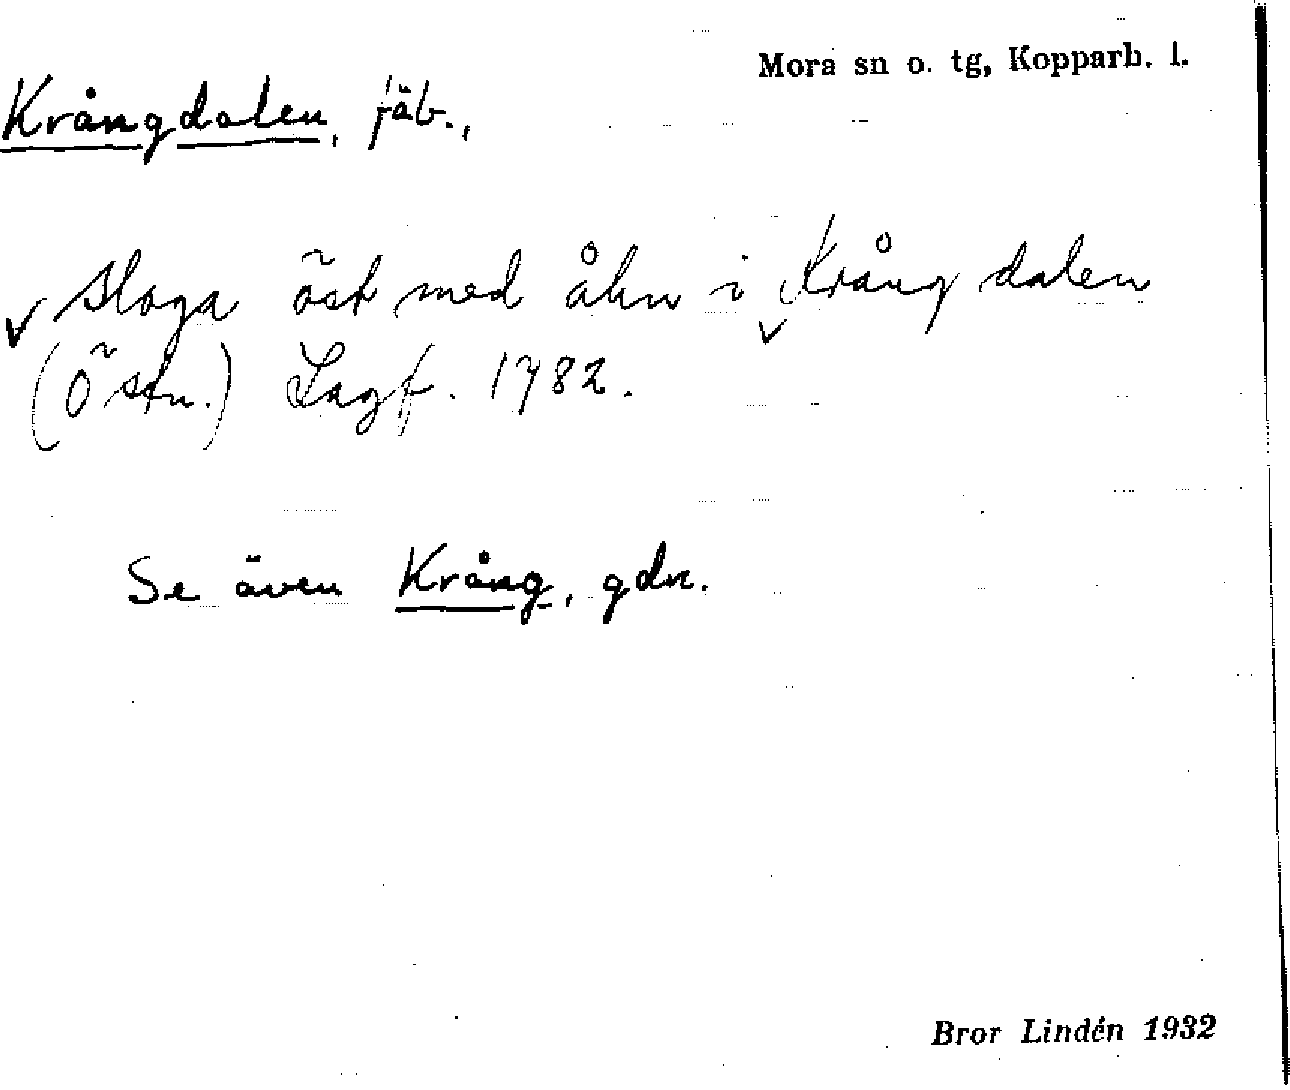 Mora sn o. tg, Kopparb. l.
Krångdalen, fäb.,
Sloga öst med åhn i Krång dalen
(Östn.) Lagf. 1782.
Se även Krång, gdn.
Bror Lindén 1932